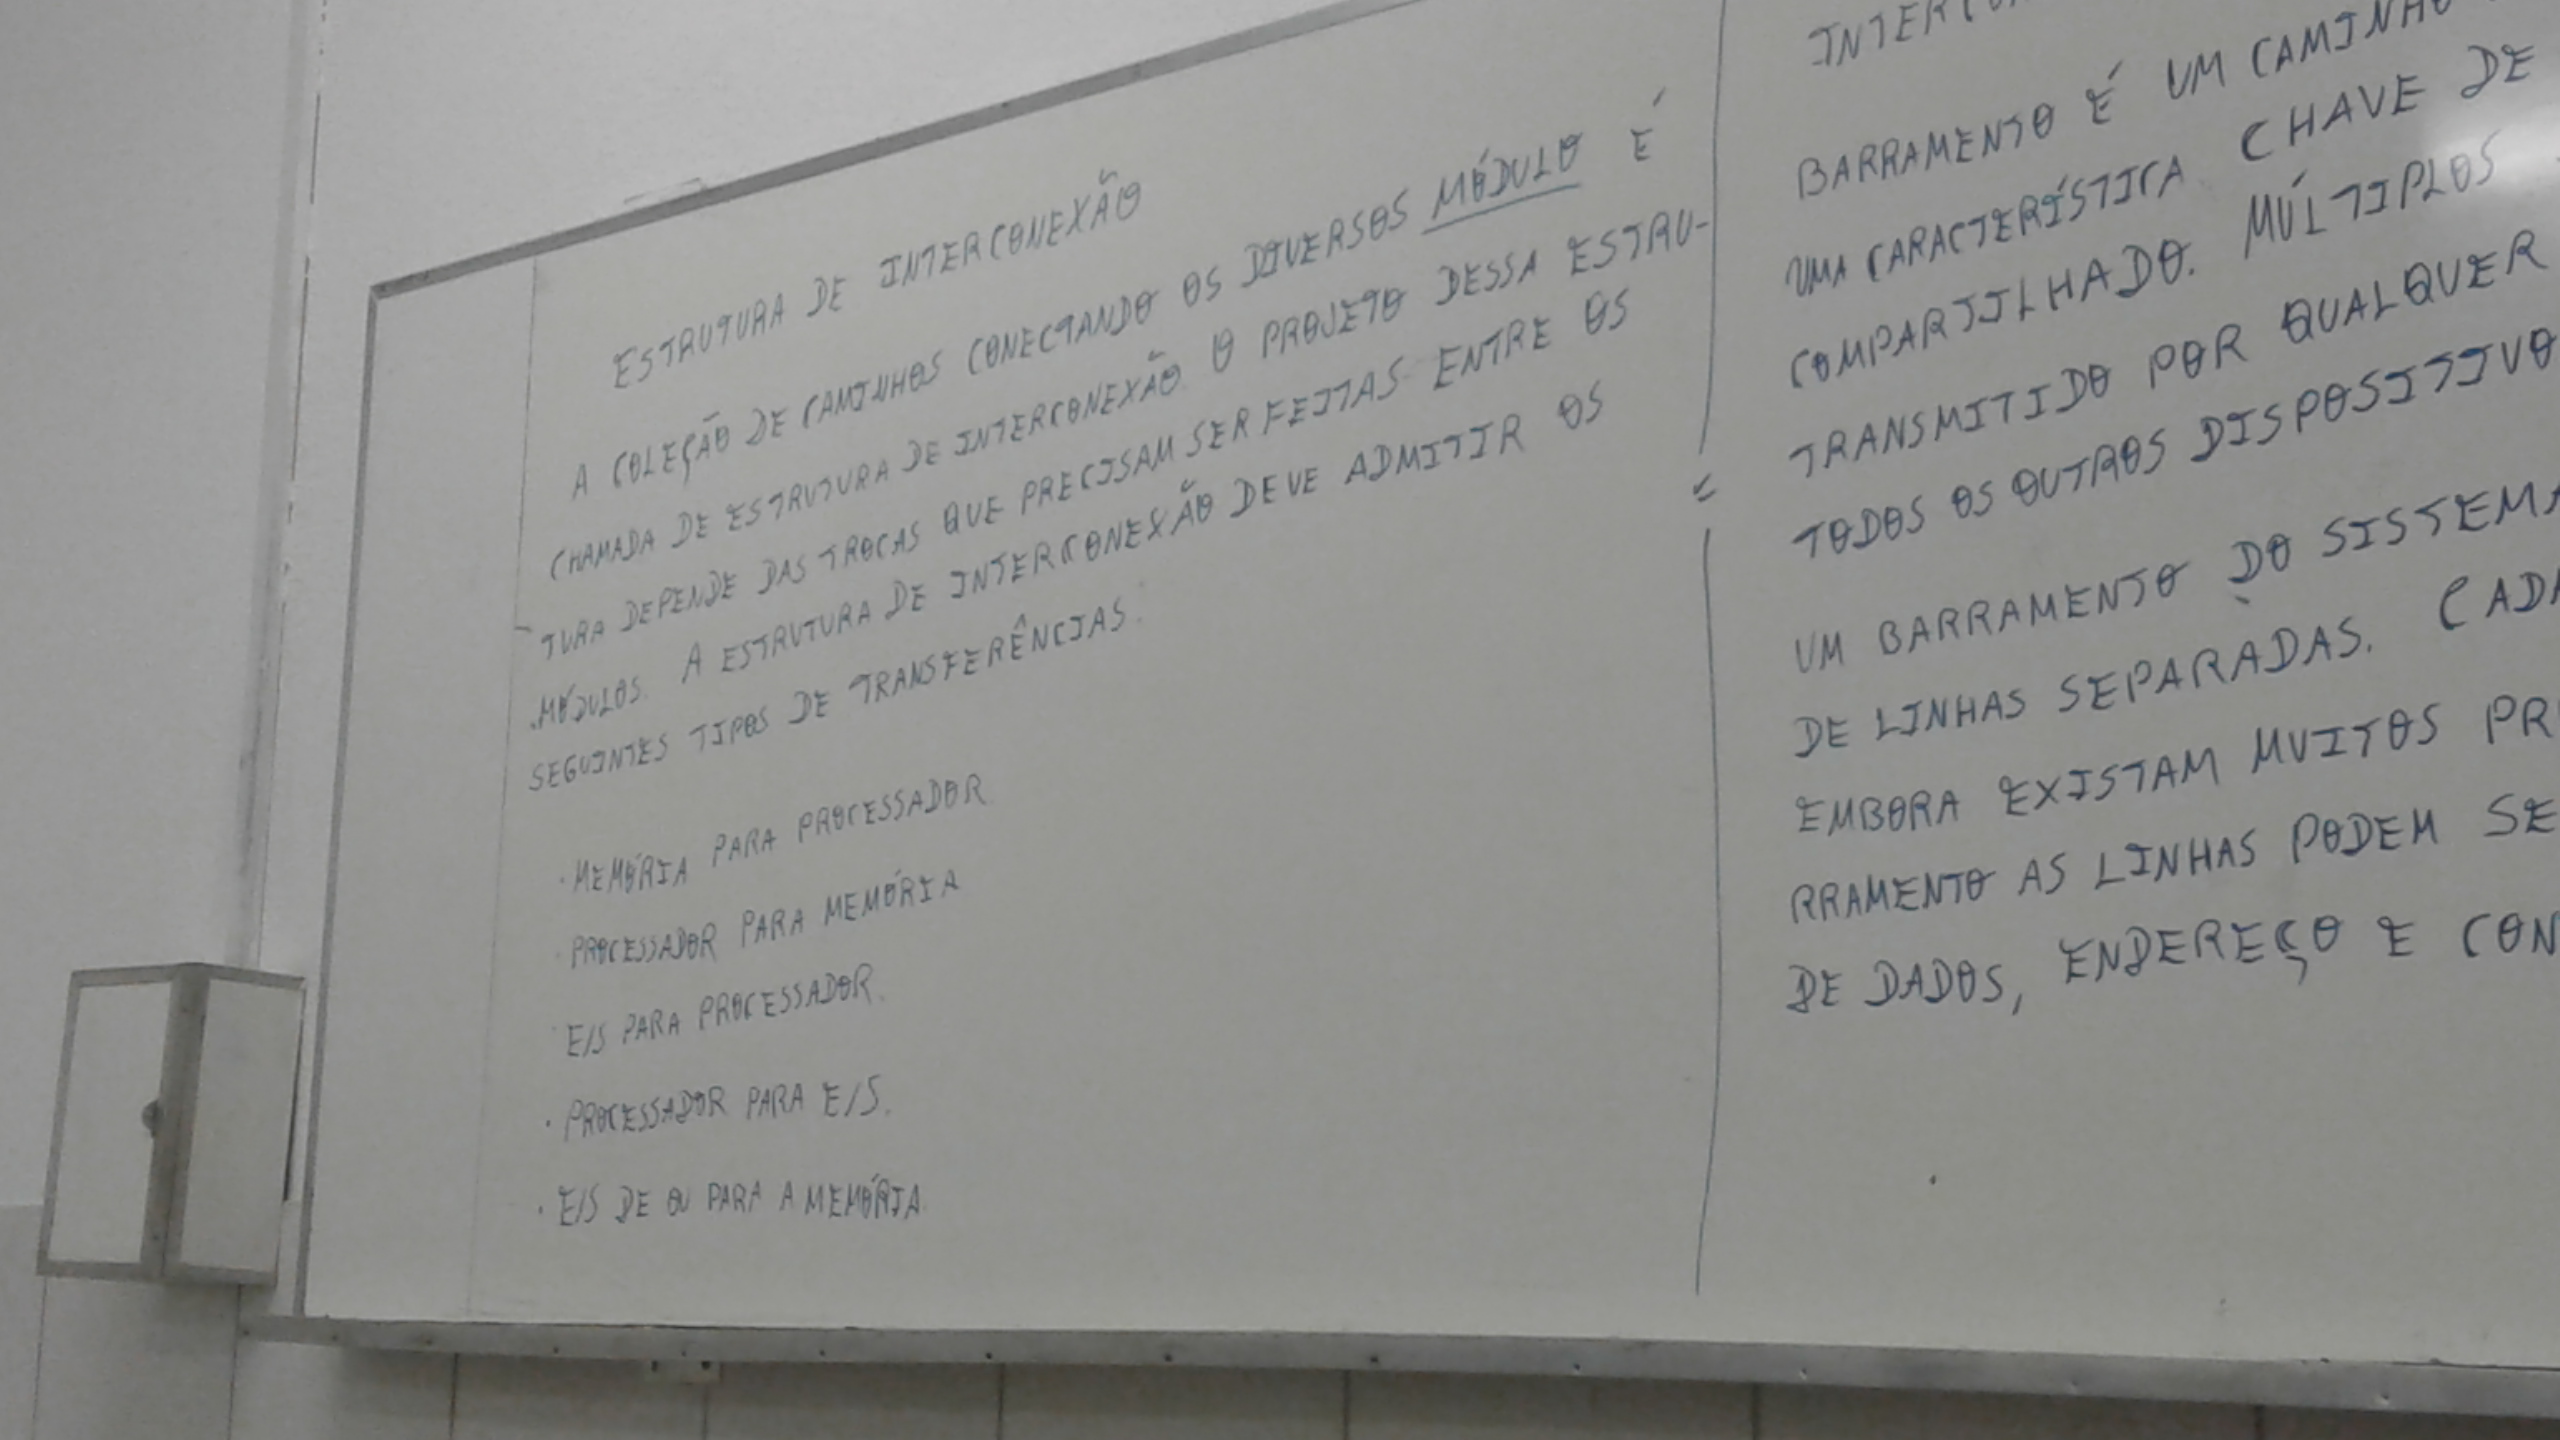 ESTRUTURA DE INTERCONEXÃO
A COLEÇÃO DE CAMINHOS CONECTANDO OS DIVERSOS MÓDULO É
CHAMADA DE ESTRUTURA DE INTERCONEXÃO. O PROJETO DESSA ESTRU-
TURA DEPENDE DAS TROCAS QUE PRECISAM SER FEITAS ENTRE OS
MÓDULOS. A ESTRUTURA DE INTERCONEXÃO DEVE ADMITIR OS
SEGUINTES TIPOS DE TRANSFERÊNCIAS.
· MEMÓRIA PARA PROCESSADOR
· PROCESSADOR PARA MEMÓRIA
· E/S PARA PROCESSADOR.
· PROCESSADOR PARA E/S.
· E/S DE OU PARA A MEMÓRIA.
BARRAMENTO É UM CAMINHO
UMA CARACTERÍSTICA CHAVE DE
COMPARTILHADO. MÚLTIPLOS
TRANSMITIDO POR QUALQUER
TODOS OS OUTROS DISPOSITIVO
UM BARRAMENTO DO SISTEMA
DE LINHAS SEPARADAS. CADA
EMBORA EXISTAM MUITOS
RRAMENTO AS LINHAS PODEM SE
DE DADOS, ENDEREÇO E CON